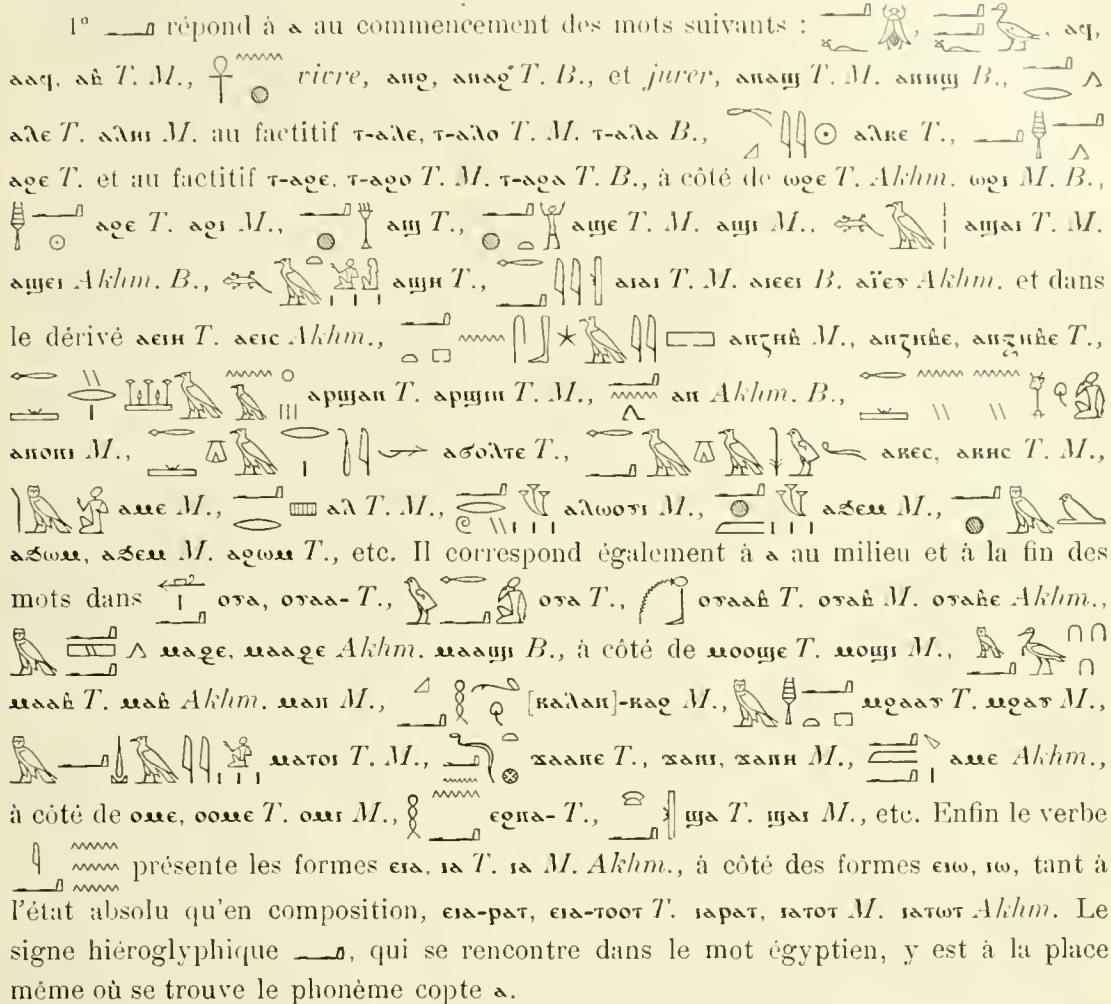 1° 𓂝 répond à ⲁ au commencement des mots suivants : , ⲁϥ,
ⲁⲁϥ, ⲁⲃ T. M., vivre, ⲁⲛϩ, ⲁⲛⲁϩ T. B., et jurer, ⲁⲛⲁϣ T. M. ⲁⲛⲏϣ B.,
ⲁⲗⲉ T. ⲁⲗⲏⲓ M. au factitif ⲧ-ⲁⲗⲉ, ⲧ-ⲁⲗⲟ T. M. ⲧ-ⲁⲗⲁ B., ⲁⲗⲕⲉ T.,
ⲁϩⲉ T. et au factitif ⲧ-ⲁϩⲉ, ⲧ-ⲁϩⲟ T. M. ⲧ-ⲁϩⲁ T. B., à côté de ⲱϩⲉ T. Akhm. ⲱϩⲓ M. B.,
ⲁϩⲉ T. ⲁϩⲓ M., ⲁϣ T., ⲁϣⲉ T. M. ⲁϣⲓ M., ⲁϣⲁⲓ T. M.
ⲁϣⲉⲓ Akhm. B., ⲁϣⲏ T., ⲁⲓⲁⲓ T. M. ⲁⲓⲉⲉⲓ B. ⲁⲓ̈ⲉⲩ Akhm. et dans
le dérivé ⲁⲉⲓⲏ T. ⲁⲉⲓⲥ Akhm., ⲁⲛⲍⲏⲃ M., ⲁⲛⲍⲏⲃⲉ, ⲁⲛⲍⲏⲃⲉ T.,
ⲁⲣϣⲁⲛ T. ⲁⲣϣⲓⲛ T. M., ⲁⲛ Akhm. B.,
ⲁⲛⲟⲛⲓ M., ⲁϭⲟⲗⲧⲉ T., ⲁⲕⲉⲥ, ⲁⲕⲏⲥ T. M.,
ⲁⲙⲉ M., ⲁⲗ T. M., ⲁⲗⲱⲟⲩⲓ M., ⲁϧⲉⲙ M.,
ⲁϧⲱⲙ, ⲁϧⲉⲙ M. ⲁϩⲱⲙ T., etc. Il correspond également à ⲁ au milieu et à la fin des
mots dans ⲟⲩⲁ, ⲟⲩⲁⲁ- T., ⲟⲩⲁ T., ⲟⲩⲁⲁⲃ T. ⲟⲩⲁⲃ M. ⲟⲩⲁⲃⲉ Akhm.,
ⲙⲁϩⲉ, ⲙⲁⲁϩⲉ Akhm. ⲙⲁⲁϣⲓ B., à côté de ⲙⲟⲟϣⲉ T. ⲙⲟϣⲓ M.,
ⲙⲁⲁⲃ T. ⲙⲁⲃ Akhm. ⲙⲁⲛ M., [ⲕⲁⲗⲁⲛ]-ⲕⲁϩ M., ⲙϩⲁⲁⲩ T. ⲙϩⲁⲩ M.,
ⲙⲁⲧⲟⲓ T. M., ϫⲁⲁⲛⲉ T., ϫⲁⲛⲓ, ϫⲁⲛⲏ M., ⲁⲙⲉ Akhm.,
à côté de ⲟⲙⲉ, ⲟⲟⲙⲉ T. ⲟⲙⲓ M., ⲉϩⲛⲁ- T., ϣⲁ T. ϣⲁⲓ M., etc. Enfin le verbe
présente les formes ⲉⲓⲁ, ⲓⲁ T. ⲓⲁ M. Akhm., à côté des formes ⲉⲓⲱ, ⲓⲱ, tant à
l'état absolu qu'en composition, ⲉⲓⲁ-ⲣⲁⲧ, ⲉⲓⲁ-ⲧⲟⲟⲧ T. ⲓⲁⲣⲁⲧ, ⲓⲁⲧⲟⲧ M. ⲓⲁⲧⲱⲧ Akhm. Le
signe hiéroglyphique 𓂝, qui se rencontre dans le mot égyptien, y est à la place
même où se trouve le phonème copte ⲁ.